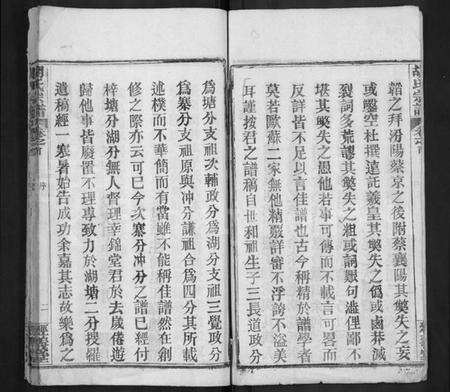 韜之拜汾陽蔡京之後附蔡襄陽其獘失之妄
或鑿空杜撰遠託羲皇其獘失之僞或鹵莽滅
裂詞多荒謬其獘失之粗或詞賤句濫俚鄙不
堪其獘失之愚他若事可傳而不載言可畧而
反詳皆不足以言佳譜也古今稱精於譜學者
莫若歐蘇二家無他精覈詳審不浮誇不溢美
耳謹按君之譜稿自世和祖生子三長道政分
爲塘分支祖次輔政分爲湖分支祖三覺政分
爲寨分支祖原與冲分謙祖合爲四分其所載
述樸而不華簡而有當雖不能稱佳譜然在創
修之際亦云可已今次寨分冲分之譜已經付
梓塘分湖分無人督理幸錦堂君於去歲倦遊
歸他事皆廢置不理專致力於湖塘二分搜羅
遺稿經一寒暑始告成功余嘉其志故樂爲之